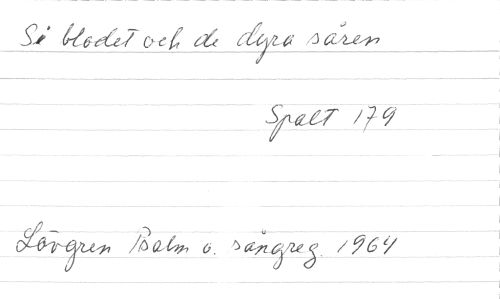 Si blodet och de dyra såren
Spalt 179
Lövgren Psalm o. sångreg. 1964